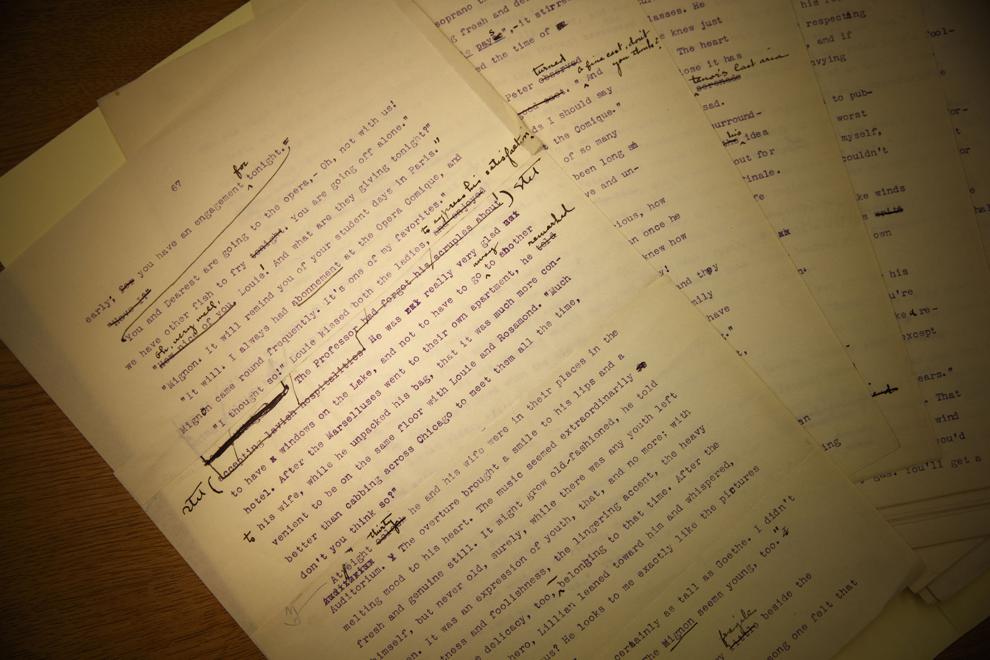 67
early; you have an engagement for tonight.
You and Dearest are going to the opera,- Oh, not with us!
we have other fish to fry tonight. You are going off alone."
"oh, very well, Louie! And what are they giving tonight?"
"Mignon. It will remind you of your student days in Paris."
"It will. I always had abonnement at the Opera Comique, and
Mignon came round frequently. It's one of my favorites."
"I thought so!" Louie kissed both the ladies, to express his satisfaction.
The Professor had forgot his scruples about) stet
stet (accepting lavish hospitalities. He was really very glad
to have windows on the Lake, and not to have to go away to another
hotel. After the Marselluses went to their own apartment, he remarked
to his wife, while he unpacked his bag, that it was much more con-
venient to be on the same floor with Louie and Rosamond. "Much
better than cabbing across Chicago to meet them all the time,
don't you think so?"
At eight thirty he and his wife were in their places in the
Auditorium. The overture brought a smile to his lips and a
melting mood to his heart. The music seemed extraordinarily
fresh and genuine still. It might grow old-fashioned, he told
himself, but never old, surely, while there was any youth left
en. It was an expression of youth, that, and no more; with
tness and foolishness, the lingering accent, the heavy
e delicacy, too,- belonging to that time. After the
hero, Lillian leaned toward him and whispered,
us? He looks to me exactly like the pictures
certainly as tall as Goethe. I didn't
The Mignon seems young, too."
people beside the
mong one felt that
soprano
g fresh and
,-it stirre
ed the time of
Peter turned
". And a fine cast, don't
you think?
ds I should say
the Comique."
of so many
been long
ve and un-
ious, how
n once he
knew how
and they
mily
have
."
lasses. He
e knew just
The heart
lose it has
tenor's last aria
sad.
urround-
his idea
out for
inale.
fe
his
respecting
, and if
nvying
to pub-
worst
myself,
couldn't
ke winds
own
his
u're
except
end
ing
ears."
That
wind
ou'd
s. You'll get a